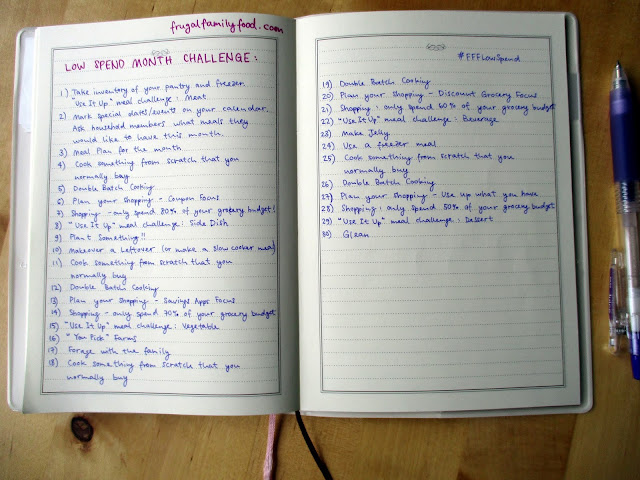 frugalfamilyfood.com
LOW SPEND MONTH CHALLENGE:
1) Take inventory of your pantry and freezer.
"Use It Up" meal challenge: Meat
2) Mark special dates/events on your calendar.
Ask household members what meals they
would like to have this month.
3) Meal Plan for the month
4) Cook something from scratch that you
normally buy
5) Double Batch Cooking
6) Plan your shopping - Coupon Focus
7) Shopping - only spend 80% of your grocery budget!
8) "Use It Up" meal challenge: Side Dish
9) Plant Something!!
10) Makeover a Leftover (or make a slow cooker meal)
11) Cook something from scratch that you
normally buy
12) Double Batch Cooking
13) Plan your shopping - Savings Apps Focus
14) Shopping - only spend 70% of your grocery budget
15) "Use It Up" meal challenge: Vegetable
16) "You Pick" Farms
17) Forage with the family
18) Cook something from scratch that you
normally buy
#FFFLowSpend
19) Double Batch Cooking
20) Plan your shopping - Discount Grocery Focus
21) Shopping: only spend 60% of your grocery budget
22) "Use It Up" meal challenge: Beverage
23) Make Jelly
24) Use a freezer meal
25) Cook something from scratch that you
normally buy
26) Double Batch Cooking
27) Plan your shopping - Use up what you have
28) Shopping: only spend 50% of your grocery budget
29) "Use It Up" meal challenge: Dessert
30) Glean